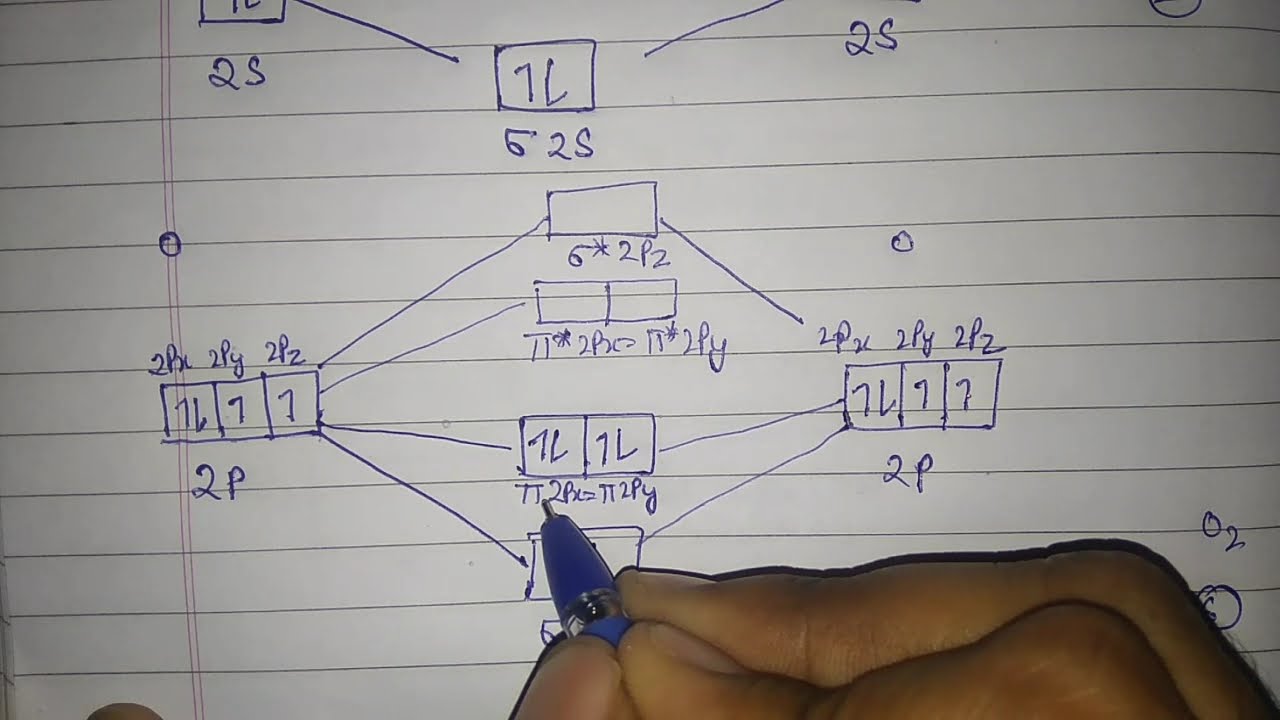 2S
2S
1L
σ 2S
σ* 2Pz
O
O
π* 2Px = π* 2Py
2Px 2Py 2Pz
2Px 2Py 2Pz
1L 1 1
1L 1 1
1L 1L
2P
2P
π 2Px = π 2Py
O2